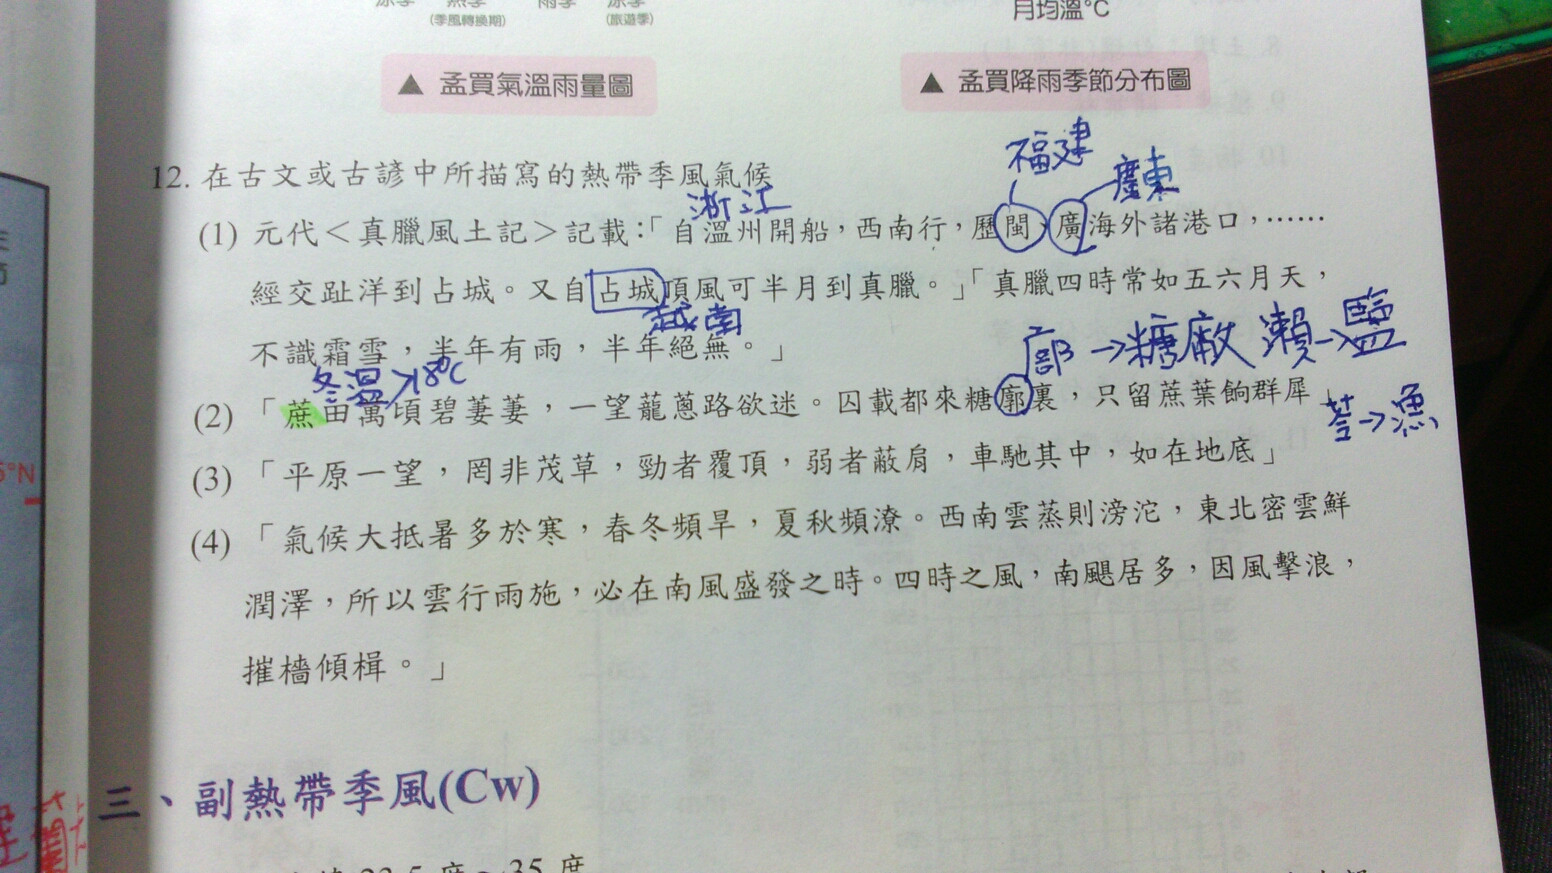 (季風轉換期)
雨季
(旅遊季)
月均溫°C
▲ 孟買氣溫雨量圖
▲ 孟買降雨季節分布圖
福建
廣東
12. 在古文或古諺中所描寫的熱帶季風氣候
浙江
(1) 元代＜真臘風土記＞記載:「自溫州開船，西南行，歷閩、廣海外諸港口，……
經交趾洋到占城。又自占城頂風可半月到真臘。」「真臘四時常如五六月天，
越南
不識霜雪，半年有雨，半年絕無。」
廍→糖廠 瀨→鹽
冬溫>18°C
(2) 「蔗田萬頃碧萋萋，一望蘢蔥路欲迷。囚載都來糖廓裏，只留蔗葉餉群犀」
→漁
(3) 「平原一望，罔非茂草，勁者覆頂，弱者蔽肩，車馳其中，如在地底」
(4) 「氣候大抵暑多於寒，春冬頻旱，夏秋頻潦。西南雲蒸則滂沱，東北密雲鮮
潤澤，所以雲行雨施，必在南風盛發之時。四時之風，南颸居多，因風擊浪，
摧檣傾楫。」
三、副熱帶季風(Cw)
°N